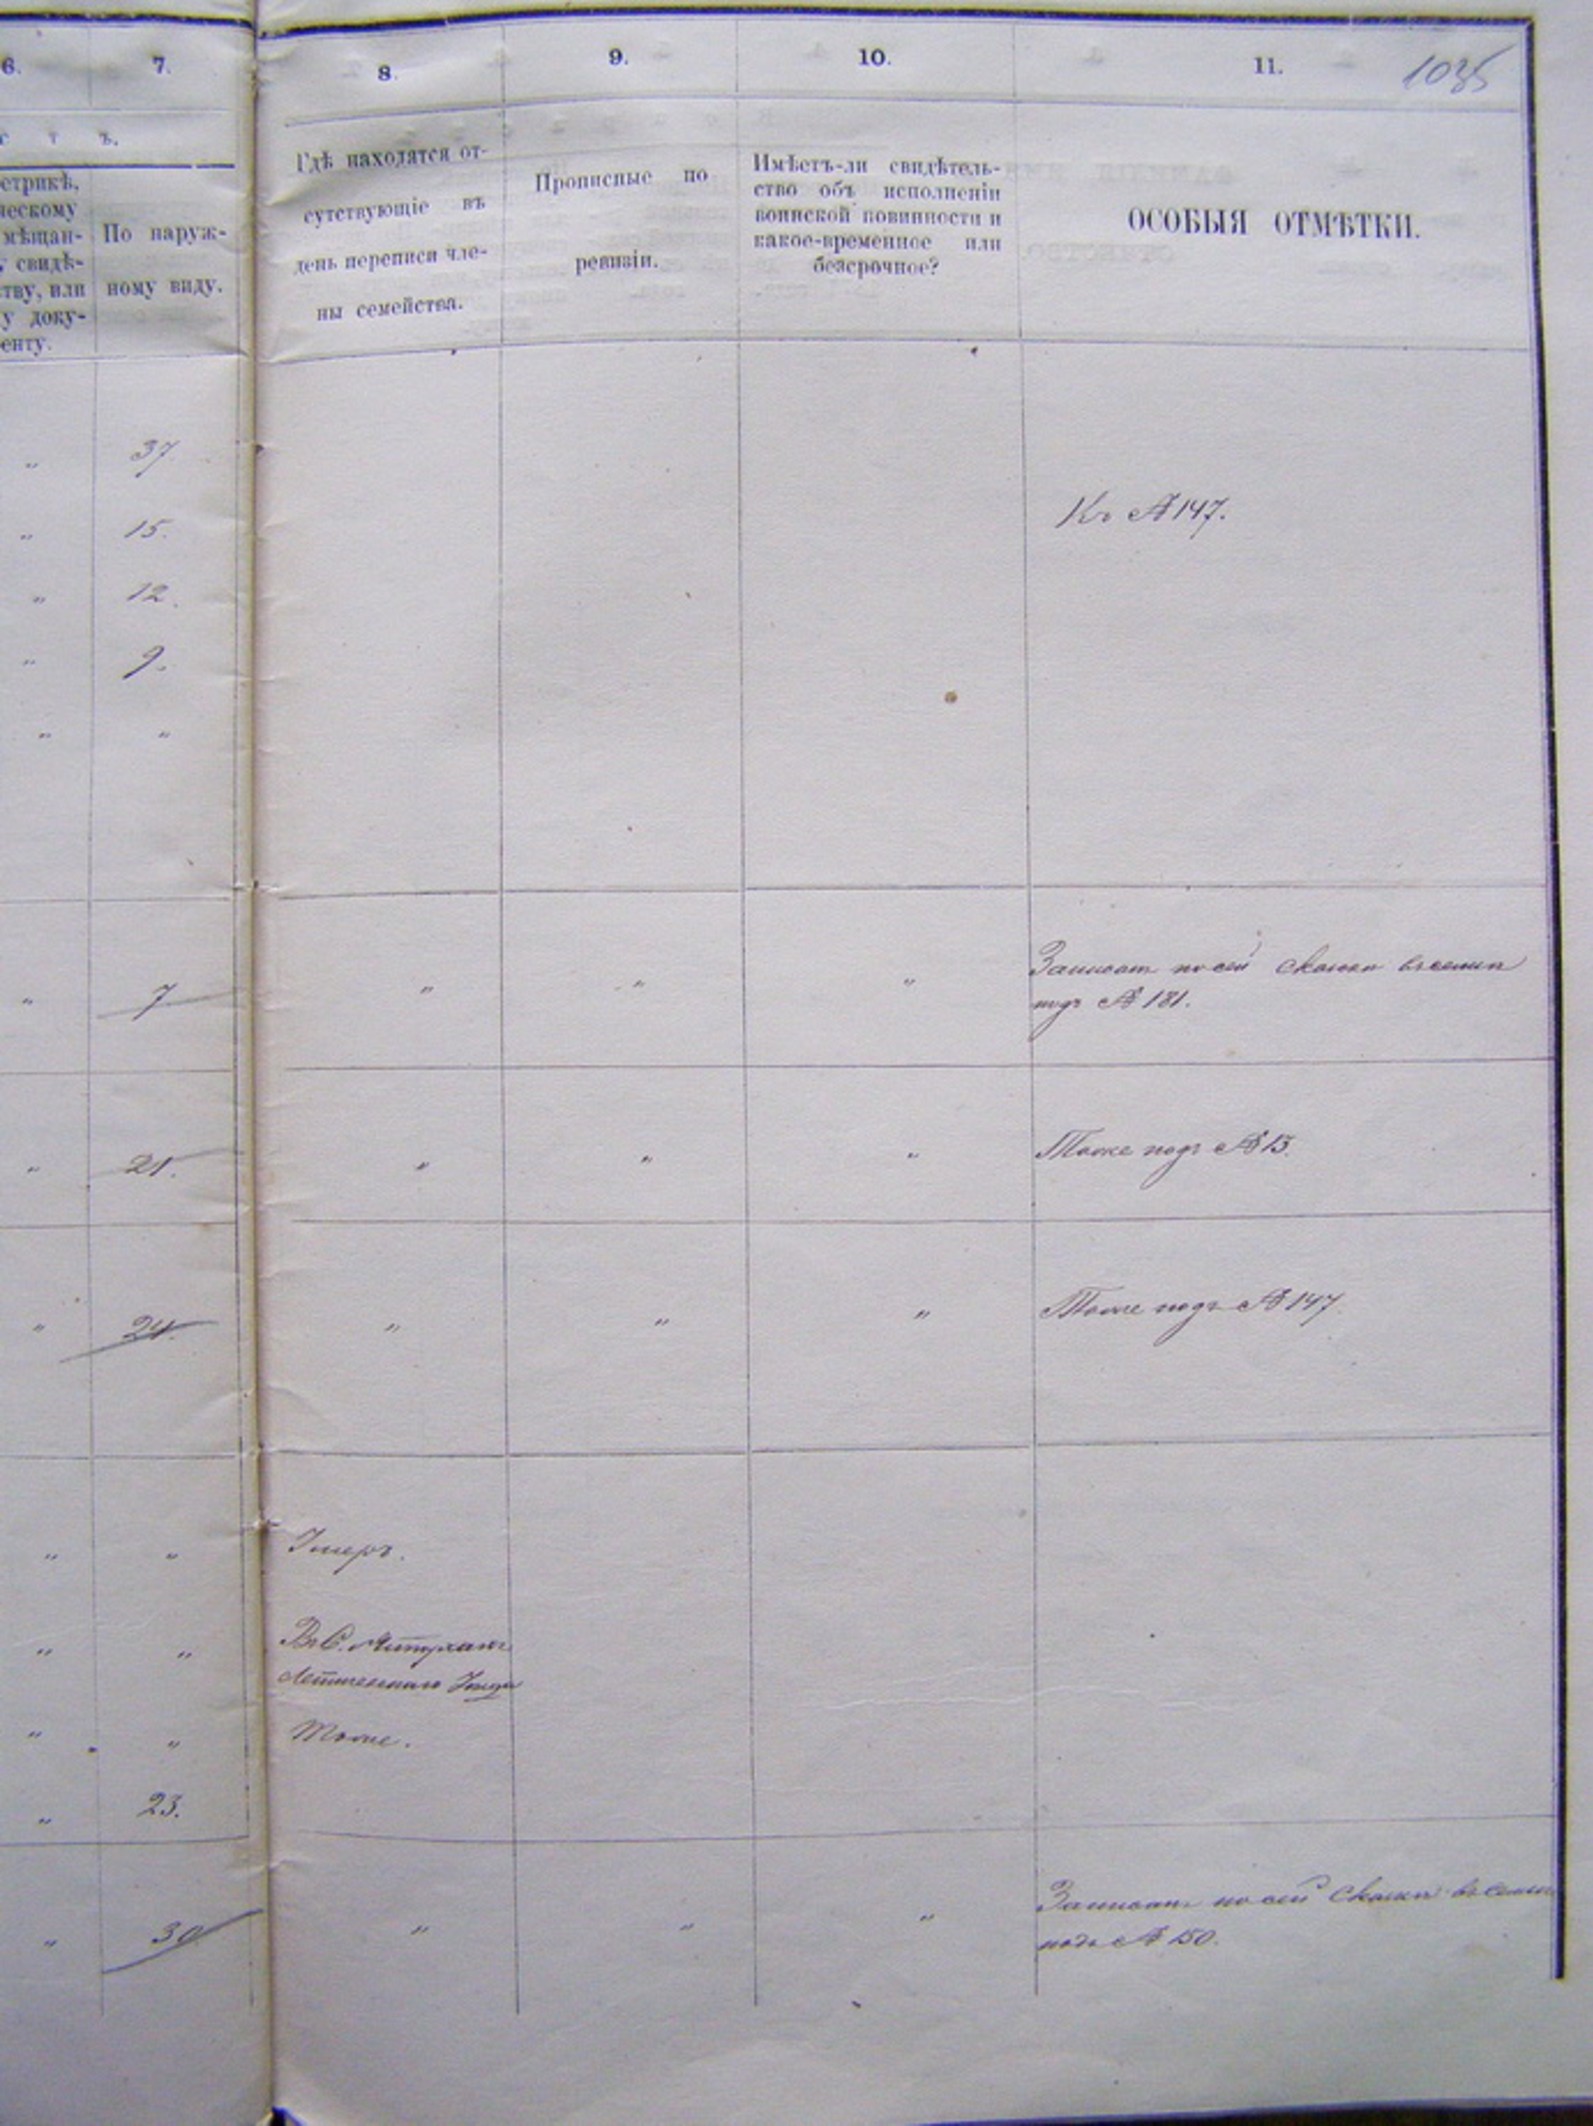 6. 7. 8. 9. 10. 11. 1035
с т ъ.
етрикѣ,
ческому
мѣщан-
свидѣ-
ству, или
у доку-
енту.
По наруж-
ному виду.
Гдѣ находятся от-
сутствующіе въ
день переписи чле-
ны семейства.
Прописные по
ревизіи.
Имѣетъ-ли свидѣтель-
ство объ исполненіи
воинской повинности и
какое-временное или
безсрочное?
ОСОБЫЯ ОТМѢТКИ.
„ 37
Къ № 147.
„ 15.
„ 12.
„ 9.
„ „
„ 7 „ „ „ Записанъ по сей сказкѣ въ семьи
подъ № 181.
„ 21. „ „ „ Тоже подъ № 13.
„ 24. „ „ „ Тоже подъ № 147.
„ „ Умеръ.
„ „ В С.
„ „ Тоже.
„ 23.
„ 30 „ „ „ Записанъ по сей сказкѣ въ семьи
подъ № 150.